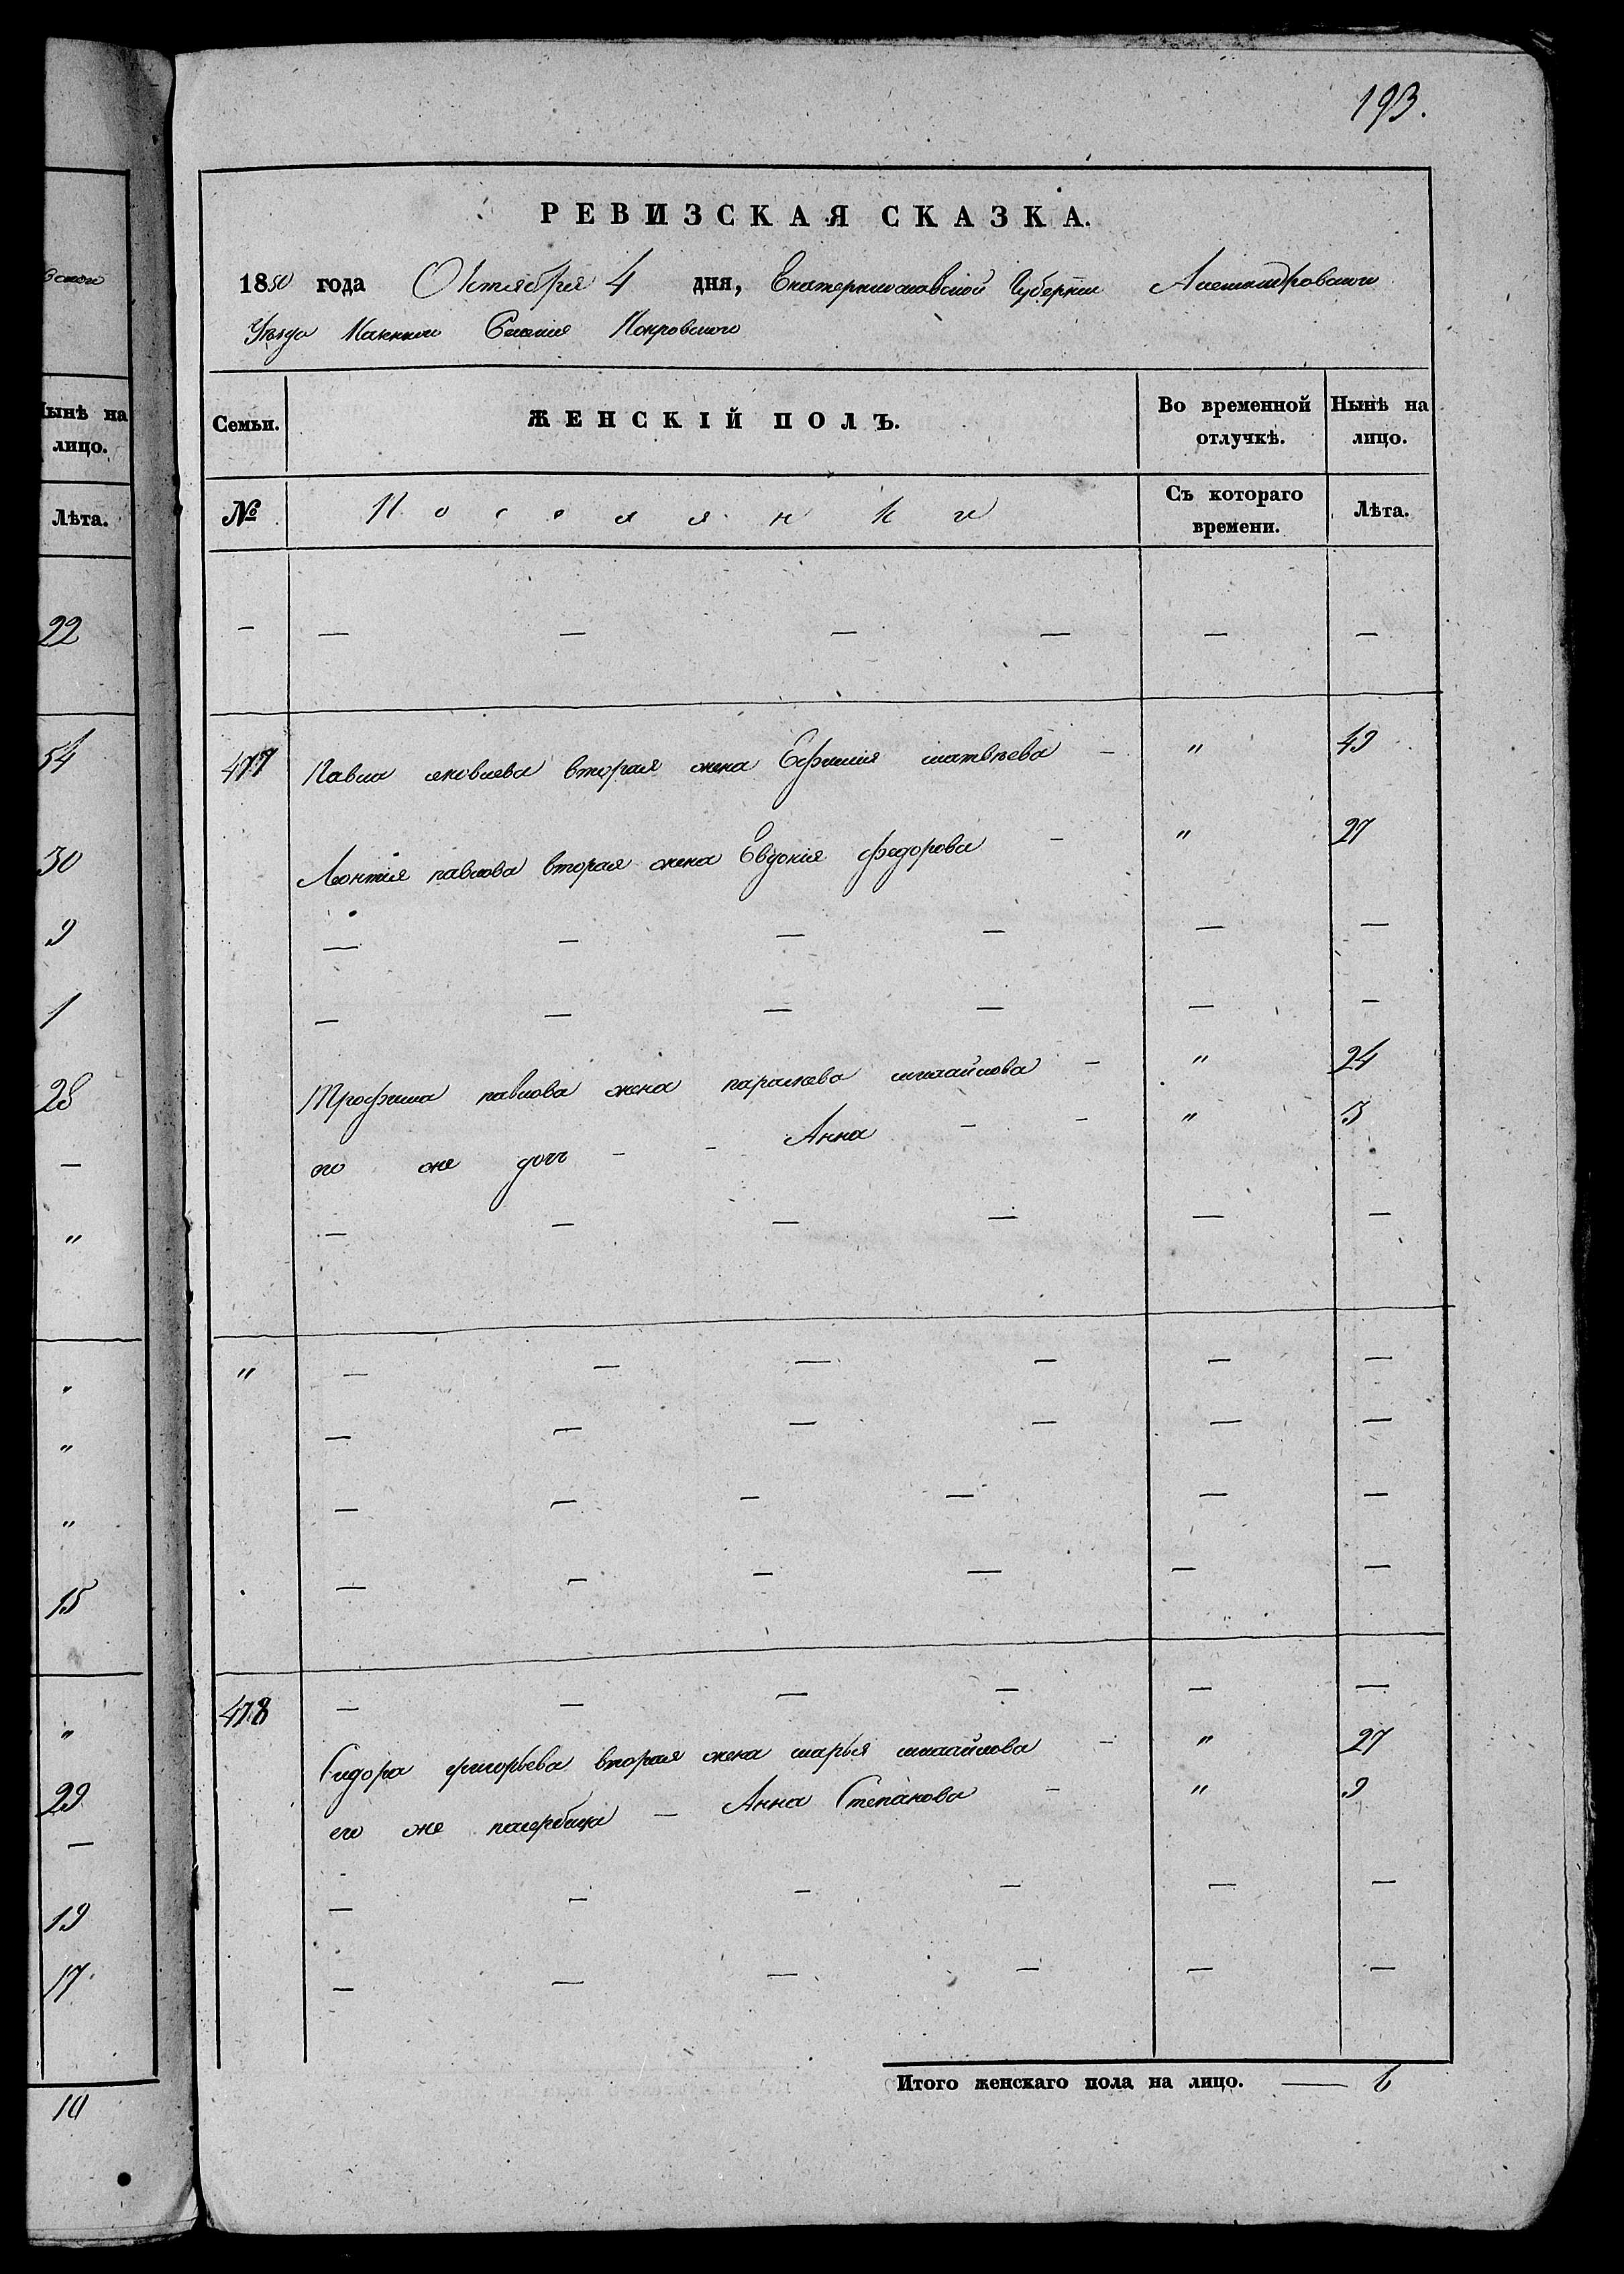 193.
РЕВИЗСКАЯ СКАЗКА.
1850 года Октября 4 дня, Екатеринославской Губернии Александровского
Уезда Селения Покровского
Семьи. ЖЕНСКІЙ ПОЛЪ. Во временной отлучкѣ. Нынѣ на лицо.
№ Поселянки Съ котораго времени. Лѣта.
— — — — — — —
477 Павла яковлева вторая жена Ефимия матвѣева — " 49
Леонтія павлова вторая жена Евдокія федорова — " 27
— — — — — —
— — — — — —
Трофима павлова жена парасковя михайлова — " 24
его же дочь — — Анна — — " 3
— — — — — —
" — — — — — —
— — — — — —
— — — — — —
— — — — — —
478 — — — — — —
Сидора григорьева вторая жена марья михайлова — " 27
его же пасербица — Анна Степанова — " 9
— — — — — —
— — — — — —
Итого женскаго пола на лицо. — 6
Нынѣ на
лицо.
Лѣта.
22
54
30
9
1
28
—
"
"
"
"
15
"
29
—
19
17
10